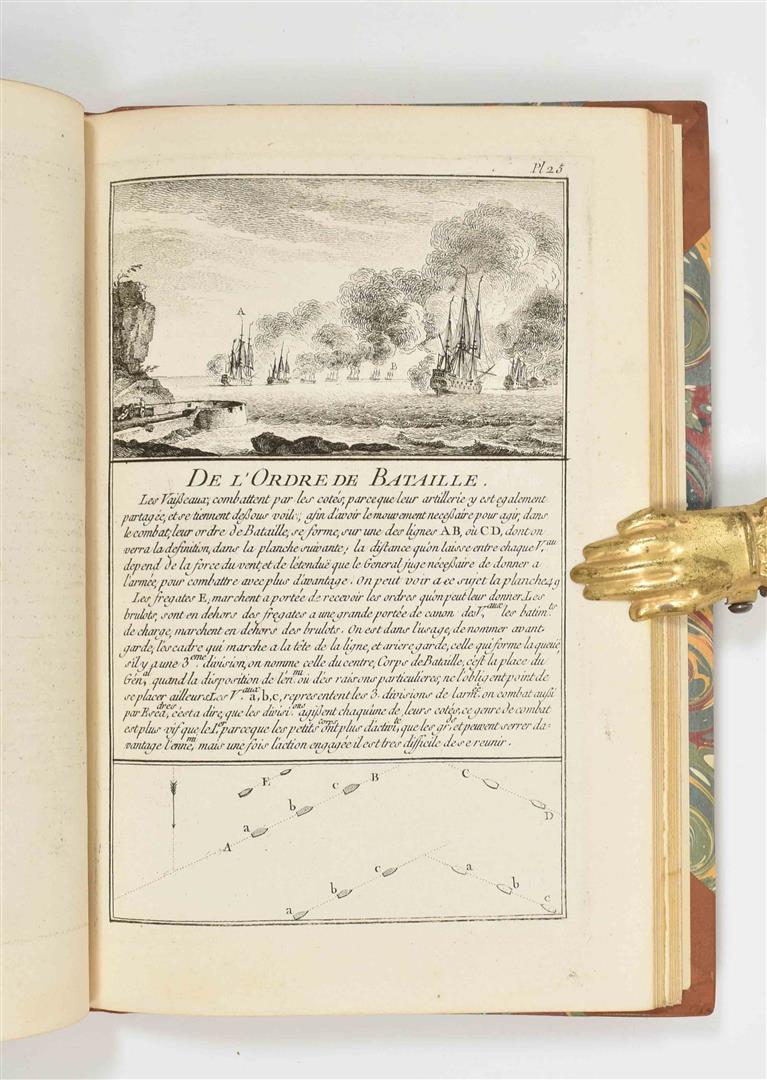 Pl 25
A
B
DE L'ORDRE DE BATAILLE.
Les Vaißeaux, combattent par les cotés, parceque leur artillerie y est egalement
partagée, et se tiennent deßous voile, afin d'avoir le mouvement neceßaire pour agir, dans
le combat, leur ordre de Bataille, se forme, sur une des lignes AB, où CD, dont on
verra la definition, dans la planche suivante; la distance qu'on laisse entre chaque V.au
depend de la force du vent, et de l'etenduë que le General juge néceßaire de donner a
l'armée, pour combattre avec plus d'avantage. On peut voir a ce sujet la planche 49
Les fregates E, marchent a portée de recevoir les ordres qu'on peut leur donner. Les
brulots, sont en dehors des fregates a une grande portée de canon des V.aux les batim.ts
de charge, marchent en dehors des brulots. On est dans l'usage, de nommer avant
garde, l'escadre qui marche a la tête de la ligne, et ariere garde, celle qui forme la queue,
s'il y a une 3.eme division, on nomme celle du centre, Corps de Bataille, c'est la place du
Gén.al quand la disposition de l'en.mi où des raisons particulieres, ne l'obligent point de
se placer ailleurs. Les V.aux a, b, c, representent les 3. divisions de l'arm. on combat aussi
par Esca.dres, c'est a dire, que les divisi.ons agißent chaqu'une de leurs cotés, ce genre de combat
est plus vif que le 1.er parceque les petits corps ont plus d'activi.té, que les gr.ds et peuvent serrer da-
vantage l'enne.mi, mais une fois l'action engagée il est tres difficile de se reunir.
E
A a b c B
C D
a b c
a b c